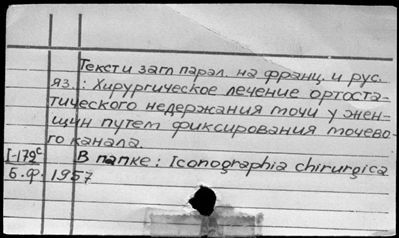 Текст и загл парал. на франц. и рус.
яз.: Хирургическое лечение ортоста-
тического недержания мочи у жен-
щин путем фиксирования мочево-
го канала.
I-179с В папке: Iconographia chirurgica
Б.ф. 1957